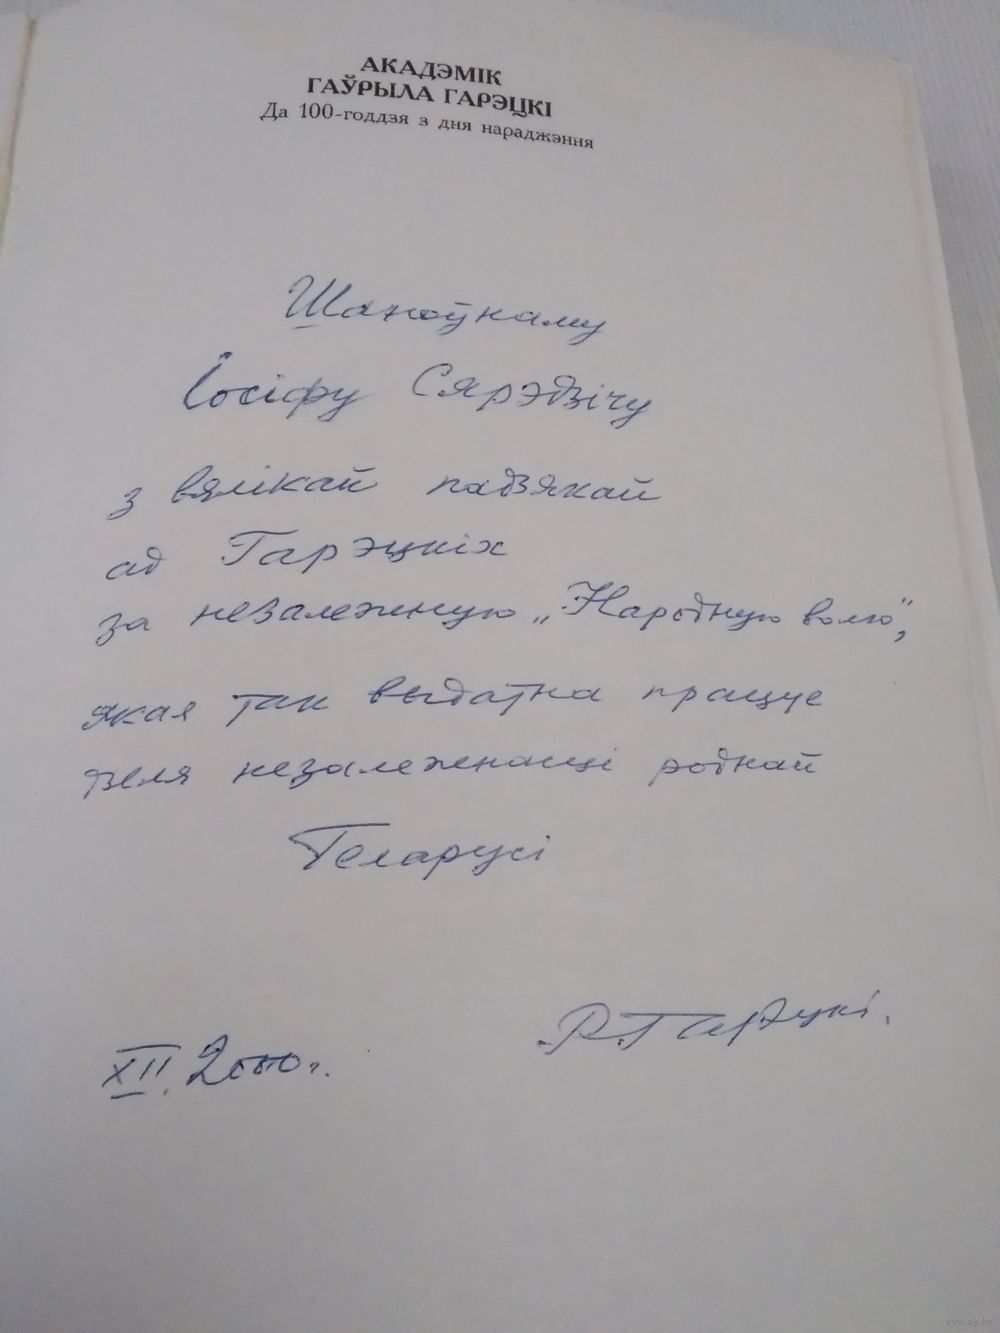 АКАДЭМІК
ГАЎРЫЛА ГАРЭЦКІ
Да 100-годдзя з дня нараджэння
Шаноўнаму
Іосіфу Сярэдзічу
з вялікай падзякай
ад Гарэцкіх
за незалежную „Народную волю”,
якая так выдатна працуе
дзеля незалежнасці роднай
Беларусі
Р. Гарэцкі.
XII. 2000 г.
www.ay.by